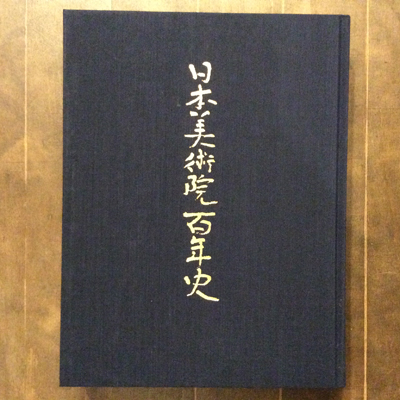 日本美術院百年史